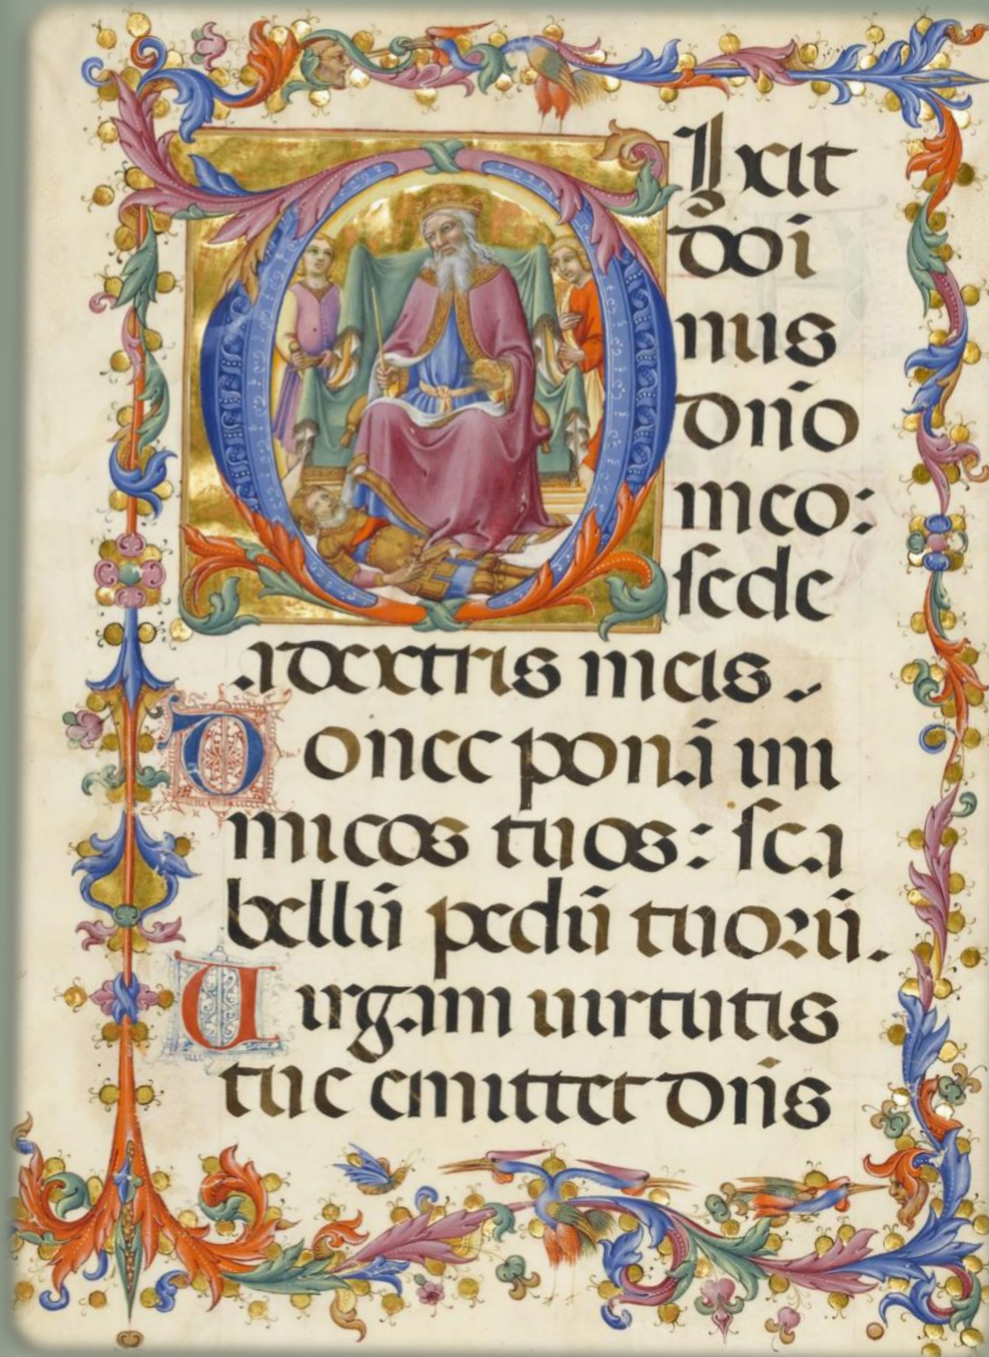 Dixit
doi
nus
dn̄o
meo:
sede
a dextris meis.
Donec ponā ini
micos tuos: sca
bellū pedū tuorū.
Uirgam uirtutis
tue emittet dn̄s